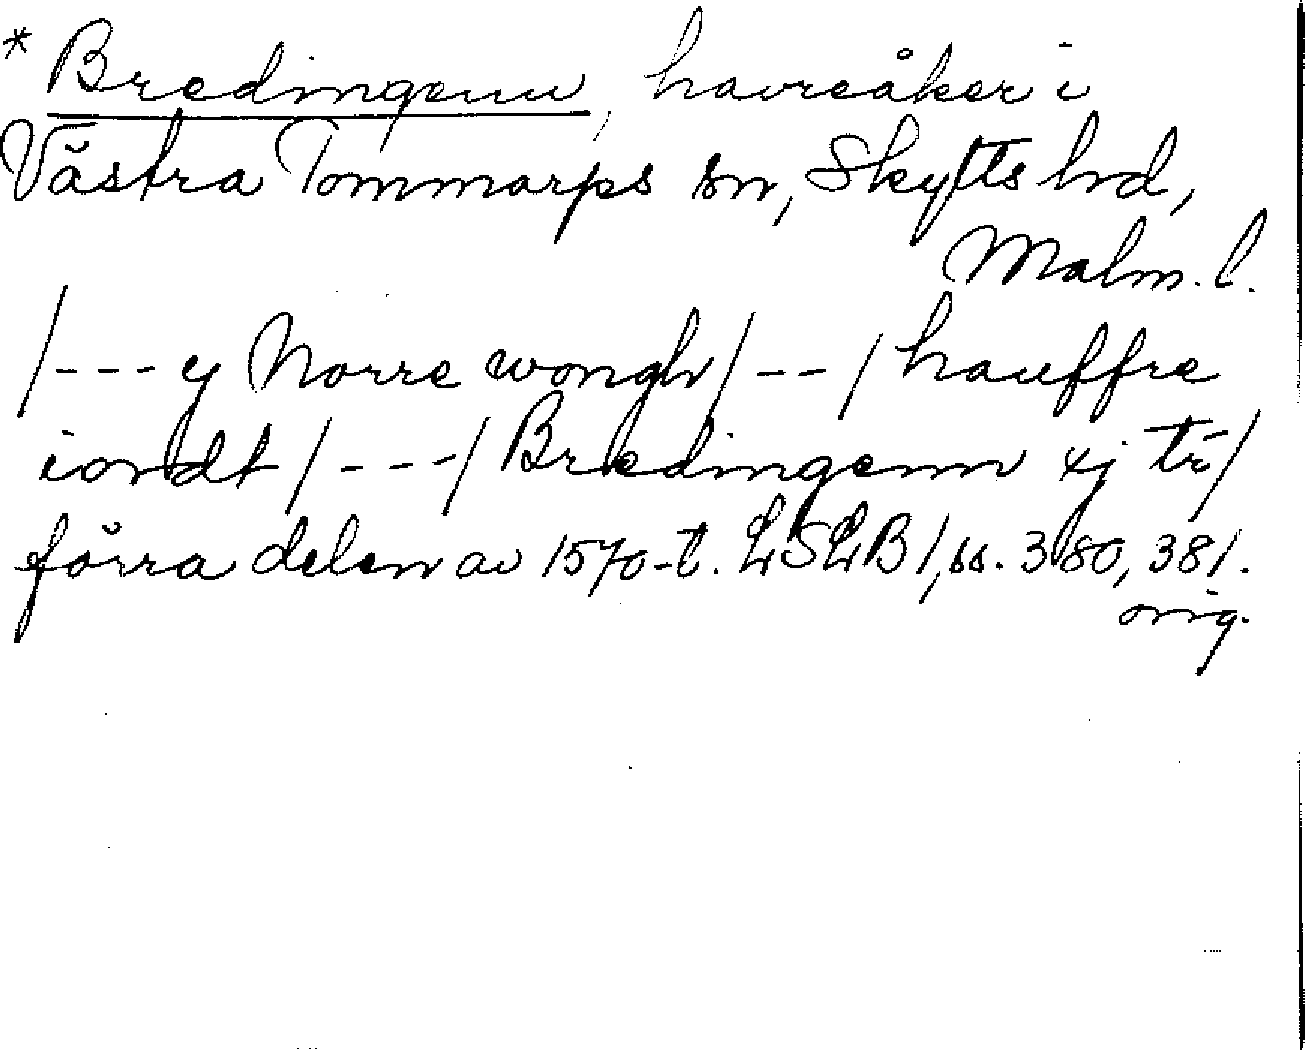 * Bredingenn, havreåker i
Västra Tommarps sn, Skytts hd,
Malm. l.
/--- y Norre wongh/--/ hauffre
iordt/---/ Bredingenn xj tr/
förra delen av 1570-t. LSLB 1, ss. 380, 381.
orig.